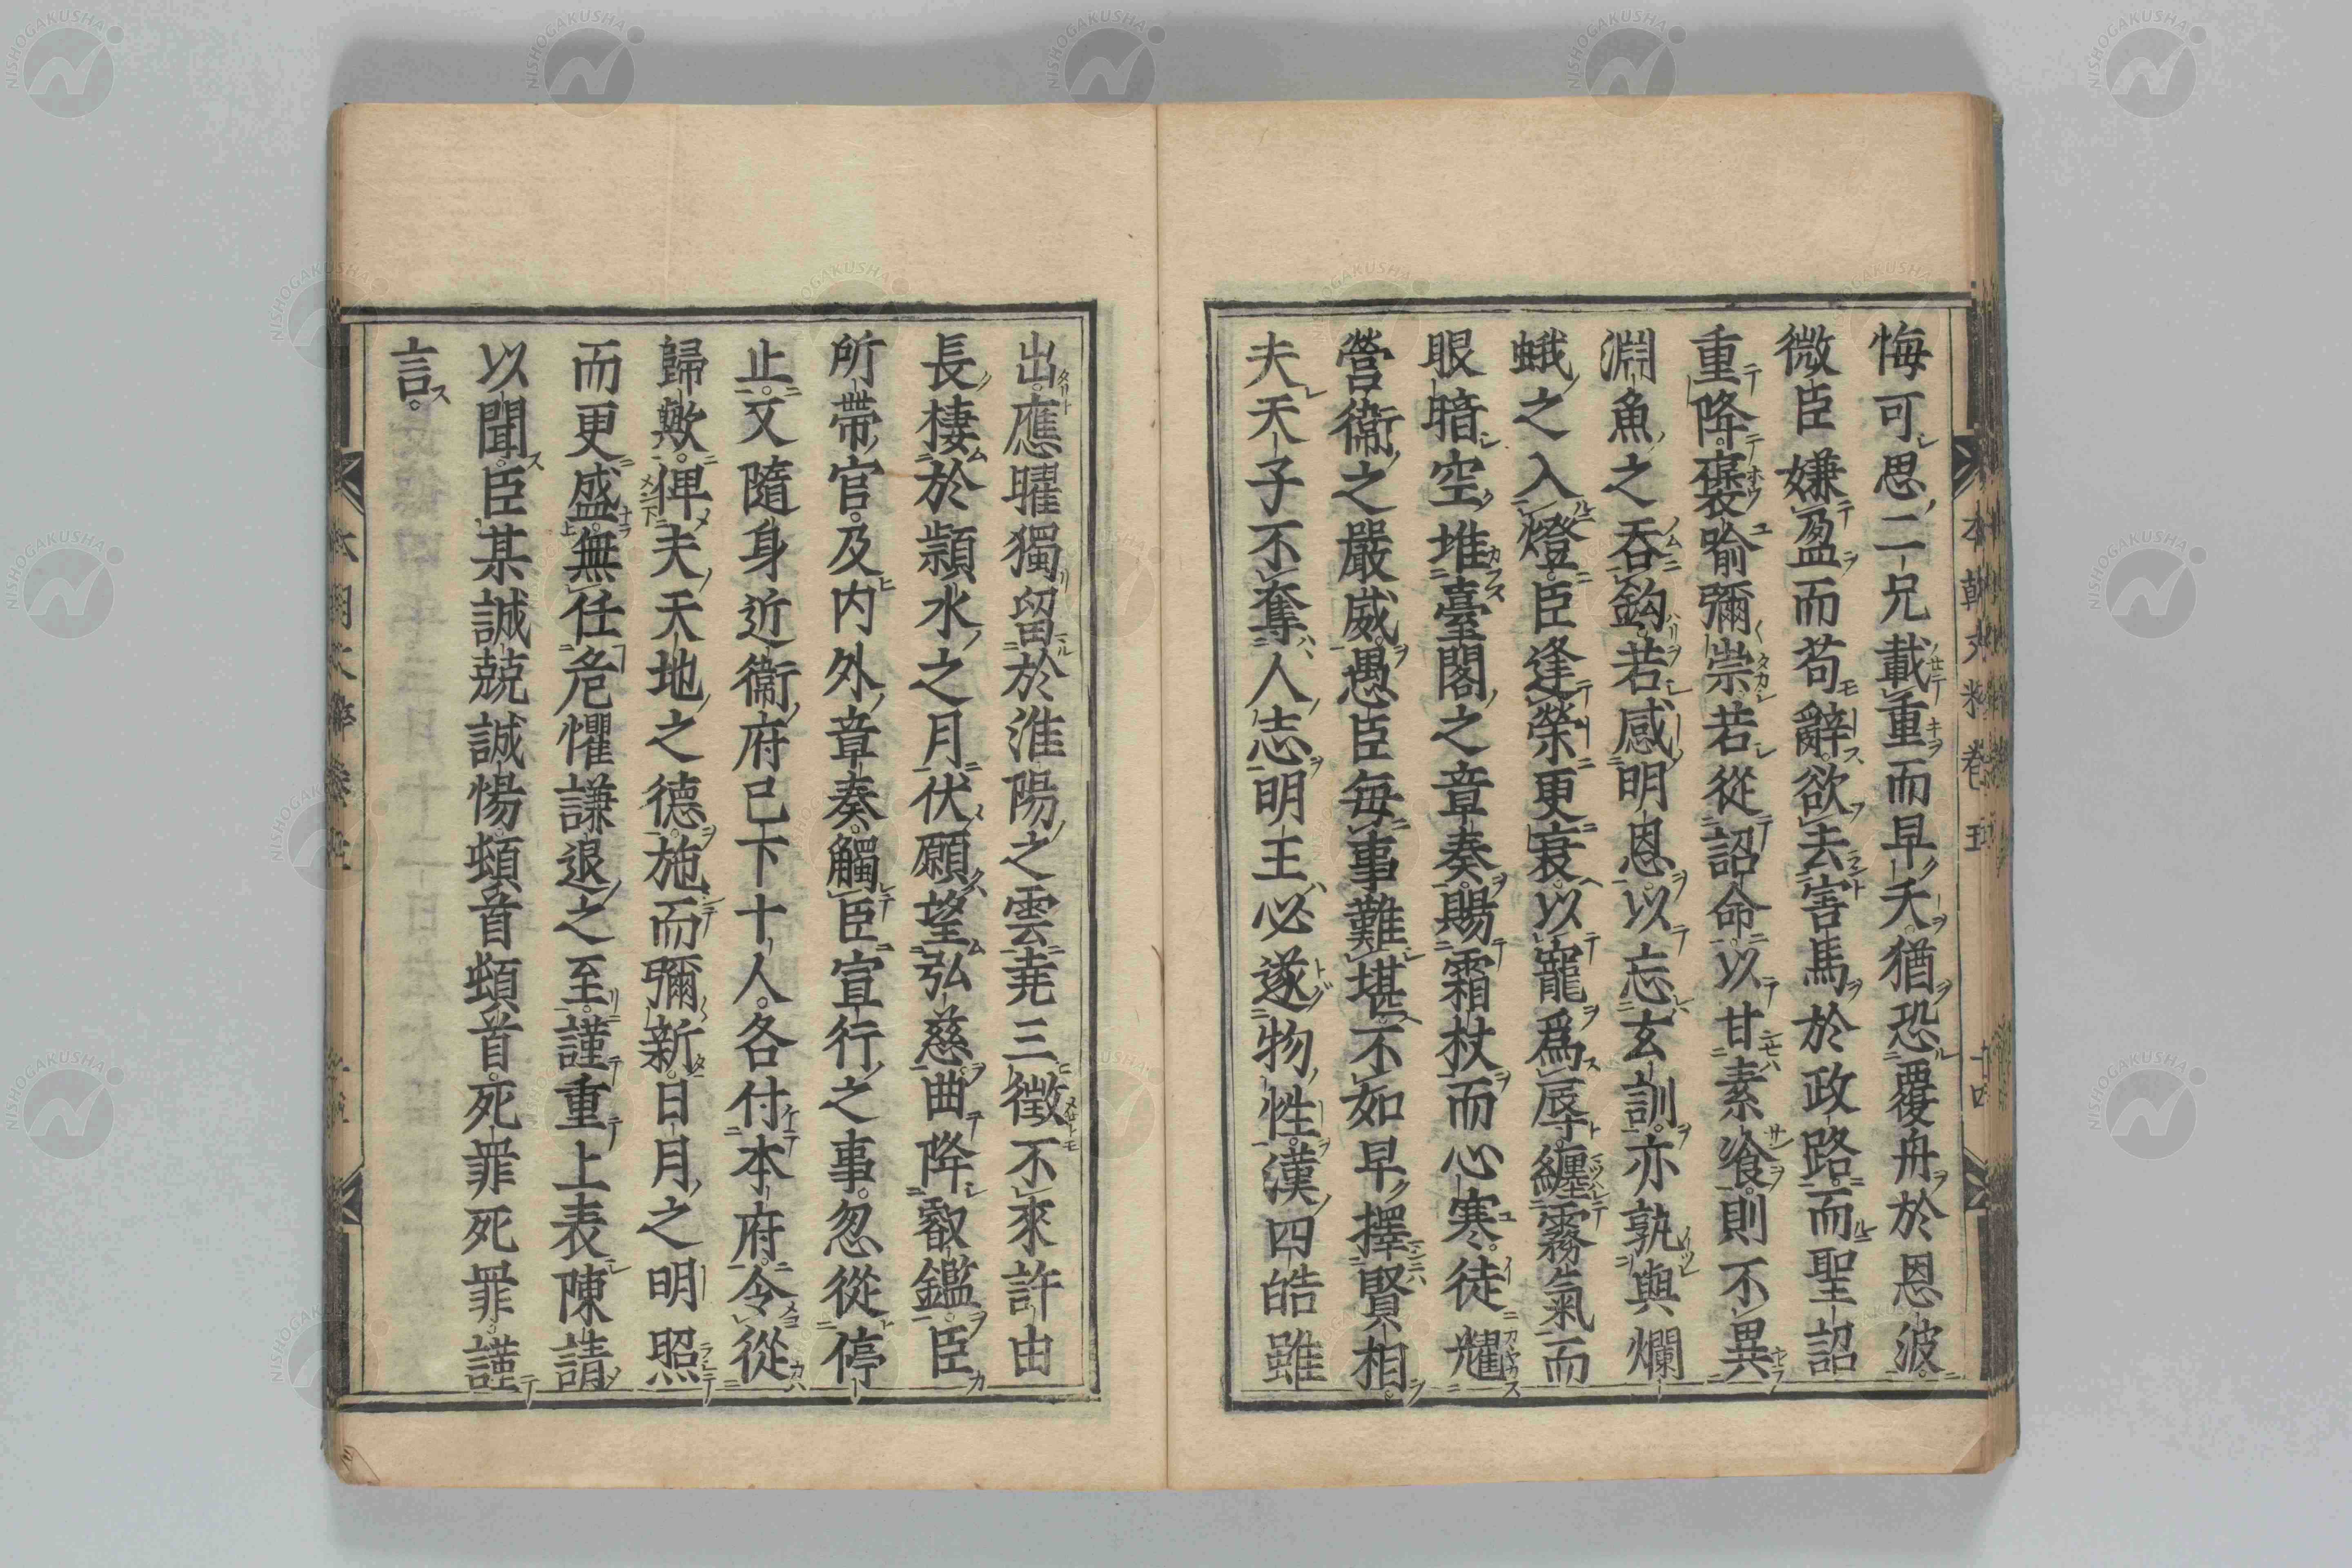 悔可思二兄載重而早夭。猶恐覆舟於恩波。
微臣嫌盈而苟辭。欲去害馬於政路。而聖詔
重降。褒喩彌崇。若從詔命。以甘素飡。則不異
淵魚之吞鈎。若感明恩。以忘玄訓。亦孰與爛
蛾之入燈。臣逢榮更衰。以寵爲辱。纏霧氣而
眼暗空。堆臺閣之章奏。賜霜杖而心寒。徒耀
營衞之嚴威。愚臣每事難堪。不如早擇賢相。
夫天子不奪人志。明王必遂物性。漢四皓雖
出。應曜獨留於淮陽之雲。堯三徵不來。許由
長棲於潁水之月。伏願望弘慈曲降叡鑑。臣
所帶官。及内外章奏。觸臣宣行之事。忽從停
止。又隨身近衞府已下十人。各付本府。令從
歸歟。俾夫天地之德。施而彌新。日月之明照
而更盛。無任危懼謙退之至。謹重上表陳請
以聞。臣某誠兢誠惕。頓首頓首。死罪死罪。謹
言。
本朝文粹卷五
廿四
NISHOGAKUSHA